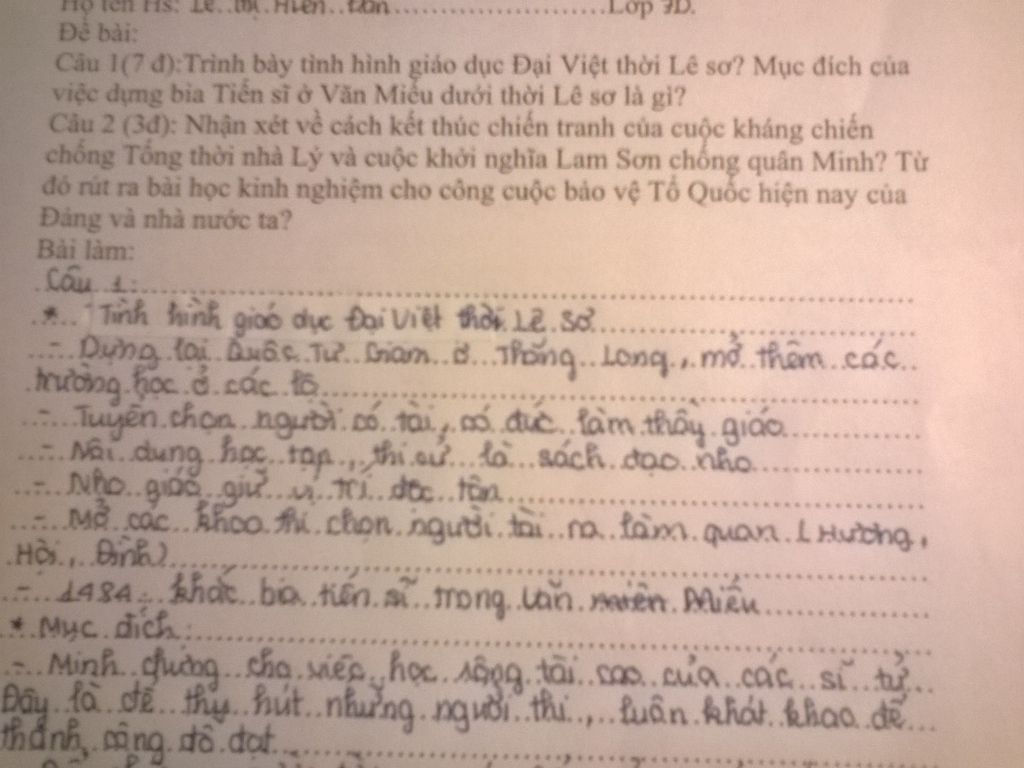 Họ tên Hs: Lê Thị Hiền .......... Lớp 7D.
Đề bài:
Câu 1(7 đ):Trình bày tình hình giáo dục Đại Việt thời Lê sơ? Mục đích của
việc dựng bia Tiến sĩ ở Văn Miếu dưới thời Lê sơ là gì?
Câu 2 (3đ): Nhận xét về cách kết thúc chiến tranh của cuộc kháng chiến
chống Tống thời nhà Lý và cuộc khởi nghĩa Lam Sơn chống quân Minh? Từ
đó rút ra bài học kinh nghiệm cho công cuộc bảo vệ Tổ Quốc hiện nay của
Đảng và nhà nước ta?
Bài làm:
Câu 1:
* Tình hình giáo dục Đại Việt thời Lê Sơ
- Dựng lại Quốc Tử Giám ở Thăng Long, mở thêm các
trường học ở các lộ
- Tuyển chọn người có tài, có đức làm thầy giáo
- Nội dung học tập, thi cử là sách đạo nho
- Nho giáo giữ vị trí độc tôn
- Mở các khoa thi chọn người tài ra làm quan (Hương,
Hội, Đình)
- 1484: khắc bia tiến sĩ trong Văn Miếu
* Mục đích:
- Minh chứng cho việc học rộng tài cao của các sĩ tử.
Đây là để thu hút những người thi, luôn khát khao để
thành công đỗ đạt